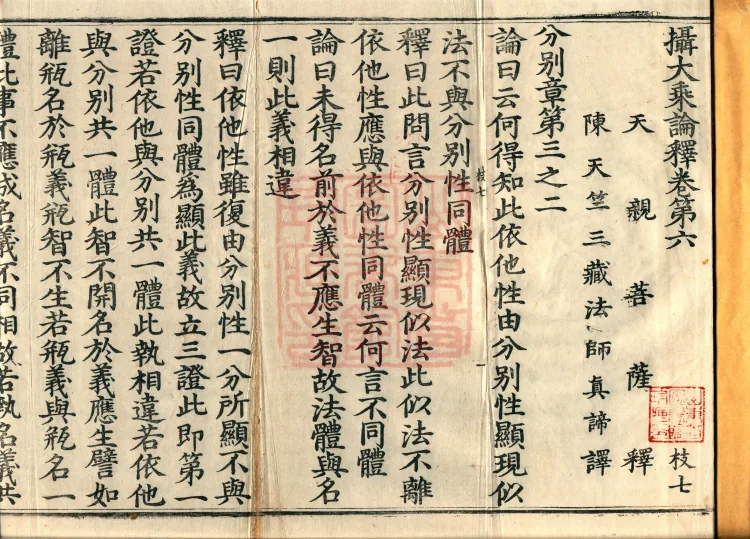 攝大乘論釋卷第六
枝七
天親菩薩釋
陳天竺三藏法師真諦譯
分別章第三之二
論曰云何得知此依他性由分別性顯現似
法不與分別性同體
枝七
釋曰此問言分別性顯現似法此似法不離
依他性應與依他性同體云何言不同體
論曰未得名前於義不應生智故法體與名
一則此義相違
釋曰依他性雖復由分別性一分所顯不與
分別性同體為顯此義故立三證此即第一
證若依他與分別共一體此執相違若依他
與分別共一體此智不開名於義應生譬如
離瓶名於瓶義瓶智不生若瓶義與瓶名一
體此事不應成名義不同相故若執名義共